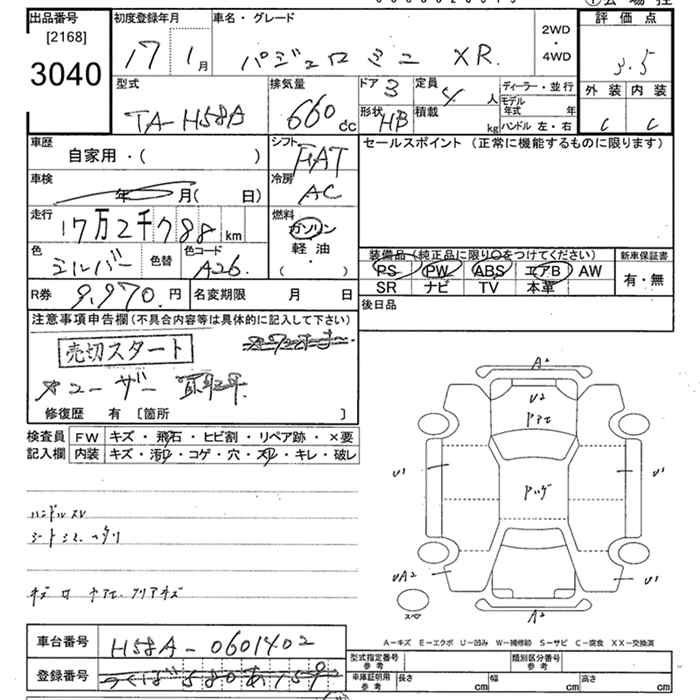 出品番号 初度登録年月 車名・グレード 2WD・4WD 評価点
[2168]
3040 17 1月 パジェロミニ XR 3.5
外装 内装
C C
型式 排気量 ドア 3 定員 4人 ディーラー・並行
TA-H58A 660cc 形状 HB 積載 kg モデル年式 年
ハンドル 左・右
車歴 シフト セールスポイント(正常に機能するものに限ります)
自家用・( ) FAT
車検 年 月( 日) 冷房 AC
走行 17万2千788km 燃料
ガソリン
軽油
( )
色 シルバー 色替 色コード A26
装備品(純正品に限り〇をつけてください) 新車保証書
PS PW ABS エアB AW 有・無
SR ナビ TV 本革
R券 9,970円 名変期限 月 日
後日品
注意事項申告欄(不具合内容等は具体的に記入して下さい)
売切スタート
ユーザー
修復歴 有 [箇所 ]
検査員 FW キズ・飛石・ヒビ割・リペア跡・×要
記入欄 内装 キズ・汚れ・コゲ・穴・スレ・キレ・破レ
ハンドルスレ
A2
U2
U1
U1
UA2
U1
A2
スペア
A-キズ E-エクボ U-凹み W-補修跡 S-サビ C-腐食 XX-交換済
車台番号 H58A-0601402
型式指定番号 参考 類別区分番号 参考
登録番号 つくば580あ159
車庫証明用 参考 長さ cm 幅 cm 高さ cm